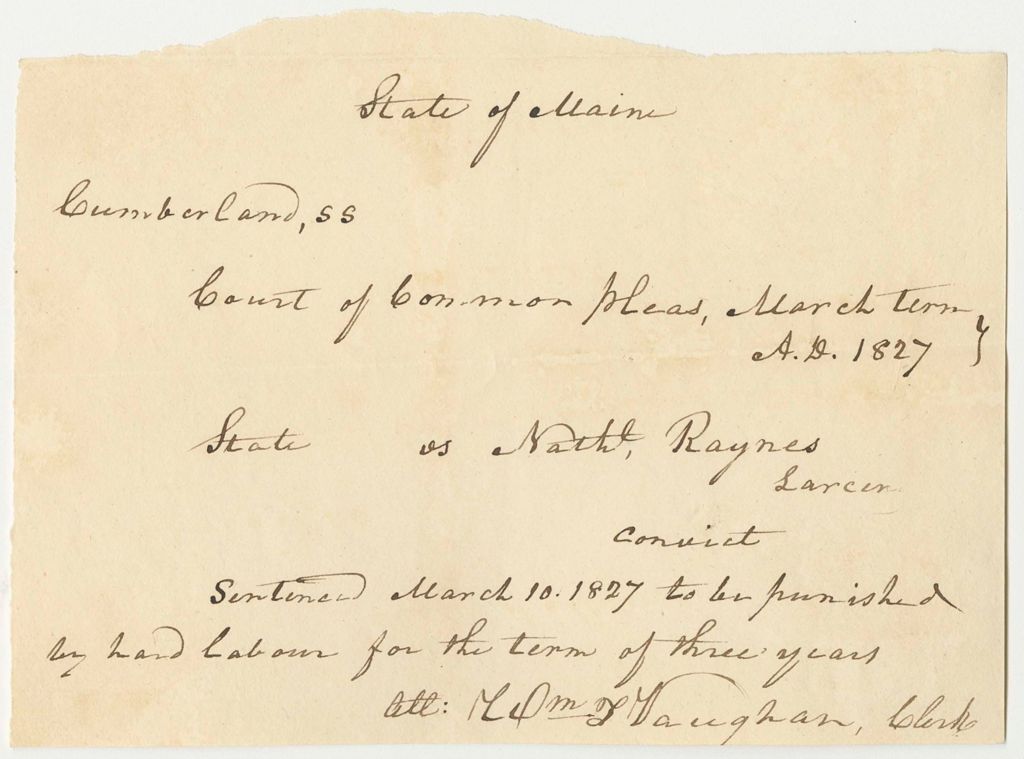 State of Maine
Cumberland, ss
Court of Common pleas, March term
A.D. 1827
State vs Nathl, Raynes
Larcen
convict
Sentenced March 10. 1827 to be punished
by hard labour for the term of three years
Att: Wm T Vaughan, Clerk